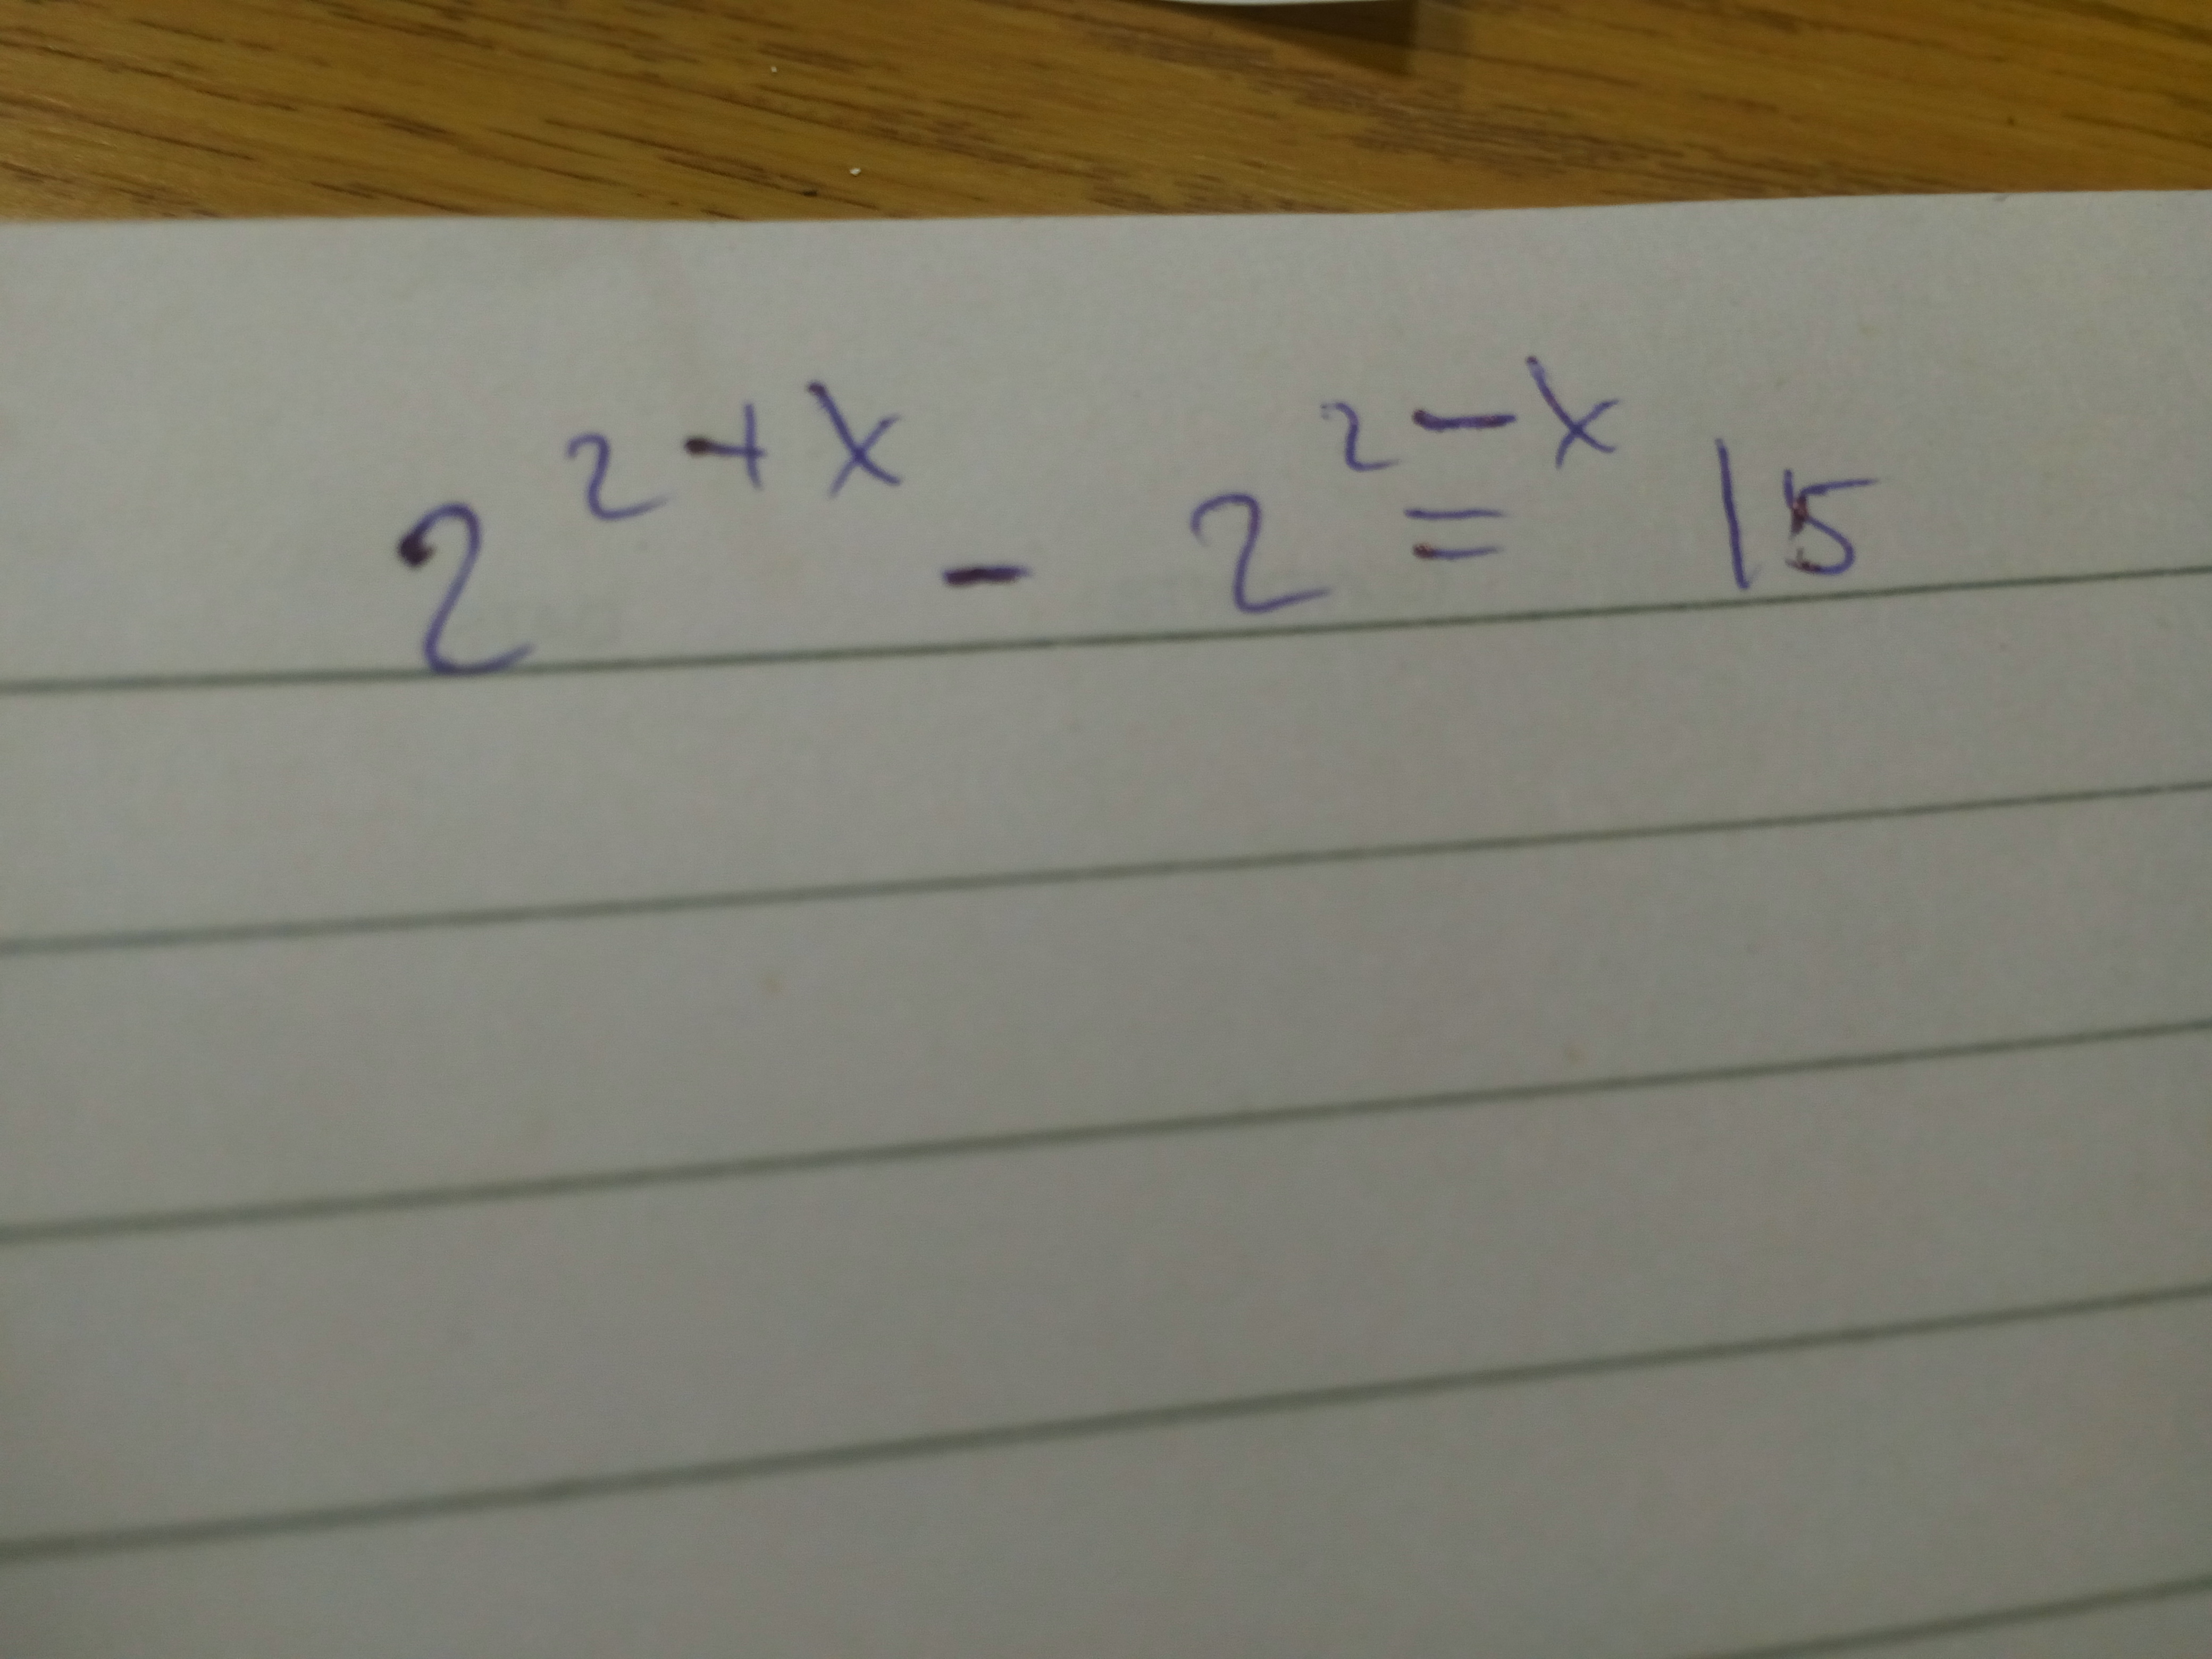 2^{2+x} - 2^{2-x} = 15